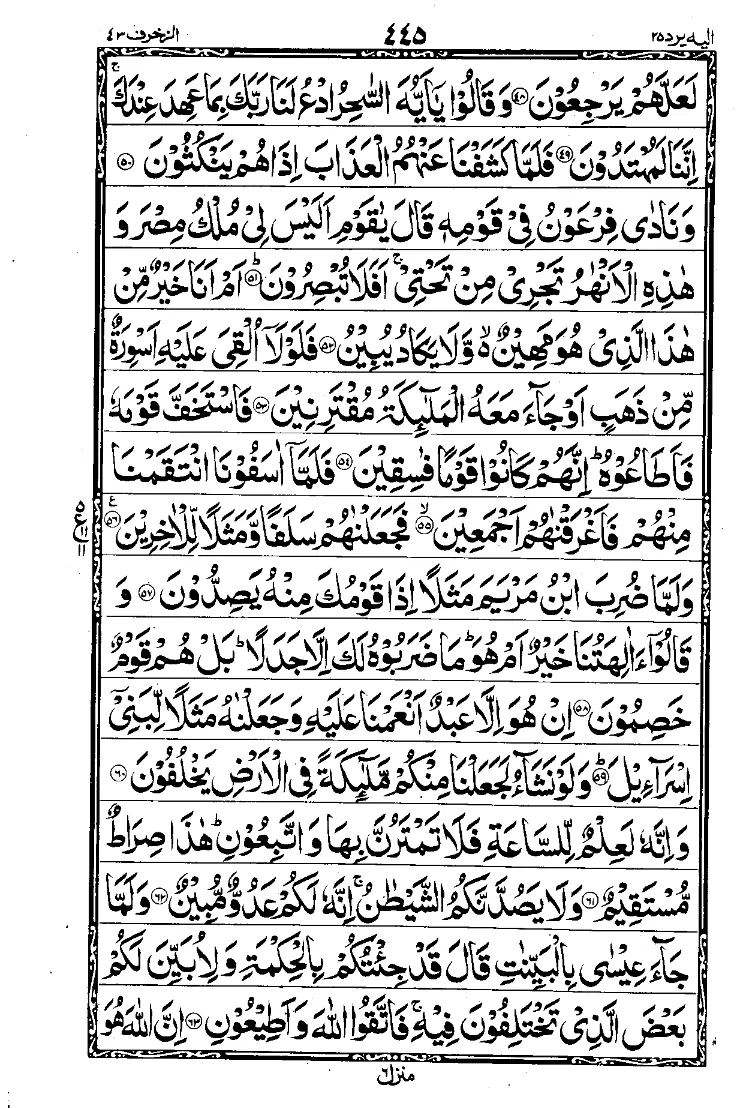 الیه یرد ۲۵ ۴۴۵ الزخرف ۴۳
لَعَلَّهُمْ يَرْجِعُوْنَ ﴿۴۸﴾ وَ قَالُوْا يٰۤاَيُّهَ السّٰحِرُ ادْعُ لَنَا رَبَّكَ بِمَا عَهِدَ عِنْدَكَ ۚ
اِنَّنَا لَمُهْتَدُوْنَ ﴿۴۹﴾ فَلَمَّا كَشَفْنَا عَنْهُمُ الْعَذَابَ اِذَا هُمْ يَنْكُثُوْنَ ﴿۵۰﴾
وَ نَادٰى فِرْعَوْنُ فِيْ قَوْمِهٖ قَالَ يٰقَوْمِ اَلَيْسَ لِيْ مُلْكُ مِصْرَ وَ
هٰذِهِ الْاَنْهٰرُ تَجْرِيْ مِنْ تَحْتِيْ ۚ اَفَلَا تُبْصِرُوْنَ ﴿۵۱﴾ؕ اَمْ اَنَا خَيْرٌ مِّنْ
هٰذَا الَّذِيْ هُوَ مَهِيْنٌ ۙ۬ وَّ لَا يَكَادُ يُبِيْنُ ﴿۵۲﴾ فَلَوْ لَاۤ اُلْقِيَ عَلَيْهِ اَسْوِرَةٌ
مِّنْ ذَهَبٍ اَوْ جَآءَ مَعَهُ الْمَلٰٓئِكَةُ مُقْتَرِنِيْنَ ﴿۵۳﴾ فَاسْتَخَفَّ قَوْمَهٗ
فَاَطَاعُوْهُ ؕ اِنَّهُمْ كَانُوْا قَوْمًا فٰسِقِيْنَ ﴿۵۴﴾ فَلَمَّاۤ اٰسَفُوْنَا انْتَقَمْنَا
مِنْهُمْ فَاَغْرَقْنٰهُمْ اَجْمَعِيْنَ ﴿۵۵﴾ۙ فَجَعَلْنٰهُمْ سَلَفًا وَّ مَثَلًا لِّلْاٰخِرِيْنَ ﴿۵۶﴾ ع
۵ ع ۱۱ ۱۱
وَ لَمَّا ضُرِبَ ابْنُ مَرْيَمَ مَثَلًا اِذَا قَوْمُكَ مِنْهُ يَصِدُّوْنَ ﴿۵۷﴾ وَ
قَالُوْۤا ءَاٰلِهَتُنَا خَيْرٌ اَمْ هُوَ ؕ مَا ضَرَبُوْهُ لَكَ اِلَّا جَدَلًا ؕ بَلْ هُمْ قَوْمٌ
خَصِمُوْنَ ﴿۵۸﴾ اِنْ هُوَ اِلَّا عَبْدٌ اَنْعَمْنَا عَلَيْهِ وَ جَعَلْنٰهُ مَثَلًا لِّبَنِيْۤ
اِسْرَآءِيْلَ ﴿۵۹﴾ؕ وَ لَوْ نَشَآءُ لَجَعَلْنَا مِنْكُمْ مَّلٰٓئِكَةً فِي الْاَرْضِ يَخْلُفُوْنَ ﴿۶۰﴾
وَ اِنَّهٗ لَعِلْمٌ لِّلسَّاعَةِ فَلَا تَمْتَرُنَّ بِهَا وَ اتَّبِعُوْنِ ؕ هٰذَا صِرَاطٌ
مُّسْتَقِيْمٌ ﴿۶۱﴾ وَ لَا يَصُدَّنَّكُمُ الشَّيْطٰنُ ۚ اِنَّهٗ لَكُمْ عَدُوٌّ مُّبِيْنٌ ﴿۶۲﴾ وَ لَمَّا
جَآءَ عِيْسٰى بِالْبَيِّنٰتِ قَالَ قَدْ جِئْتُكُمْ بِالْحِكْمَةِ وَ لِاُبَيِّنَ لَكُمْ
بَعْضَ الَّذِيْ تَخْتَلِفُوْنَ فِيْهِ ۚ فَاتَّقُوا اللّٰهَ وَ اَطِيْعُوْنِ ﴿۶۳﴾ اِنَّ اللّٰهَ هُوَ
منزل ۶